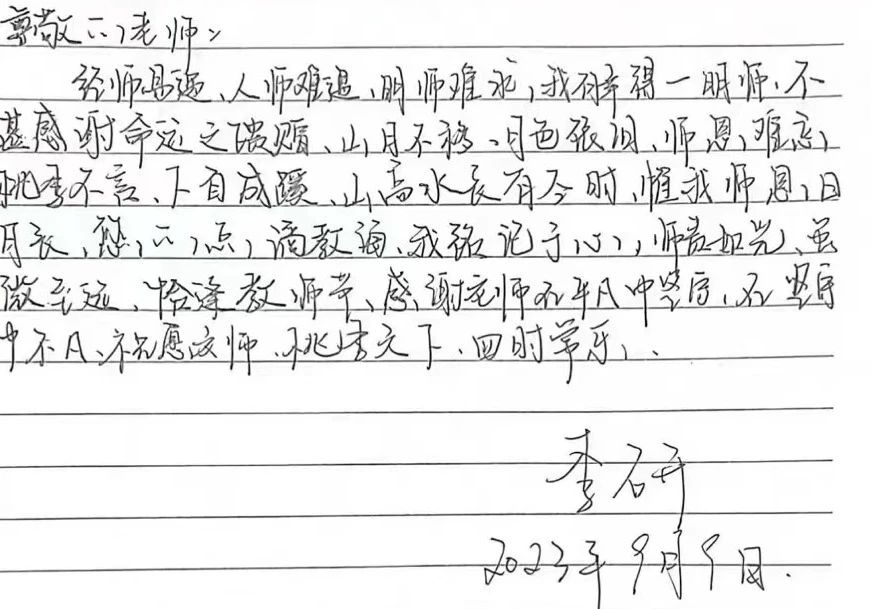 尊敬的老师:
经师易遇、人师难遇、明师难求,我碎得一明师、不
甚感谢命运之馈赠、山月不移、月色依旧、师恩难忘,
桃李不言、下自成蹊、山高水长有尽时、惟我师恩日
月长、您的点滴教诲、我铭记于心,师者如光、虽
微至远、恰逢教师节、感谢老师在平凡中坚守、在坚守
中不凡、祝愿 师、桃李天下、四时常乐、.
李研
2023年9月9日.